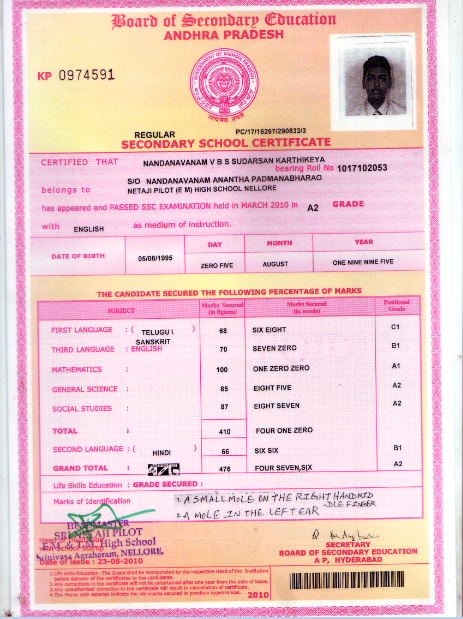 Board of Secondary Education
ANDHRA PRADESH
KP 0974591
REGULAR PC/17/16267/290833/3
SECONDARY SCHOOL CERTIFICATE
CERTIFIED THAT NANDANAVANAM V B S SUDARSAN KARTHIKEYA
bearing Roll No 1017102053
S/O NANDANAVANAM ANANTHA PADMANABHARAO
belongs to NETAJI PILOT (E M) HIGH SCHOOL NELLORE
has appeared and PASSED SSC EXAMINATION held in MARCH 2010 in A2 GRADE
with ENGLISH as medium of instruction.
DAY MONTH YEAR
DATE OF BIRTH 05/08/1995 ZERO FIVE AUGUST ONE NINE NINE FIVE
THE CANDIDATE SECURED THE FOLLOWING PERCENTAGE OF MARKS
SUBJECT Marks Secured (in figures) Marks Secured (in words) Positional Grade
FIRST LANGUAGE : ( TELUGU \ SANSKRIT ) 68 SIX EIGHT C1
THIRD LANGUAGE : ENGLISH 70 SEVEN ZERO B1
MATHEMATICS : 100 ONE ZERO ZERO A1
GENERAL SCIENCE : 85 EIGHT FIVE A2
SOCIAL STUDIES : 87 EIGHT SEVEN A2
TOTAL : 410 FOUR ONE ZERO
SECOND LANGUAGE : ( HINDI ) 66 SIX SIX B1
GRAND TOTAL : 476 FOUR SEVEN SIX A2
Life Skills Education : GRADE SECURED :
Marks of Identification 1. A SMALL MOLE ON THE RIGHT HAND MID
-DLE FINGER
2. A MOLE IN THE LEFT EAR
HEADMASTER
SRI NETAJI PILOT
High School
Srinivasa Agraharam, NELLORE.
Date of issue : 23-05-2010
SECRETARY
BOARD OF SECONDARY EDUCATION
A P, HYDERABAD
1.Life Skills Education :The Grade shall be incorporated by the respective Head of the Institution
before delivery of the certificates to the candidates.
2.Any corrections in the certificate will not be entertained after one year from the date of issue.
3.Any unauthorised correction in the certificate will result in cancellation of certificate.
4.The Marks with asterisk indicate the old marks secured in previous appearances. 2010